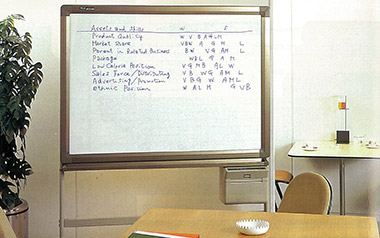 Assets and Skills W S
Product Quality W V B A M L M
Market Share V B W A G M L
Parent in Related Business B W V G A M L
Package W B L G A M
Low Calorie Position V G M B A L W
Sales Force/Distributing V B W G A M L
Advertising/Promotion V B G W A M L
Ethnic Position W A L M G V B